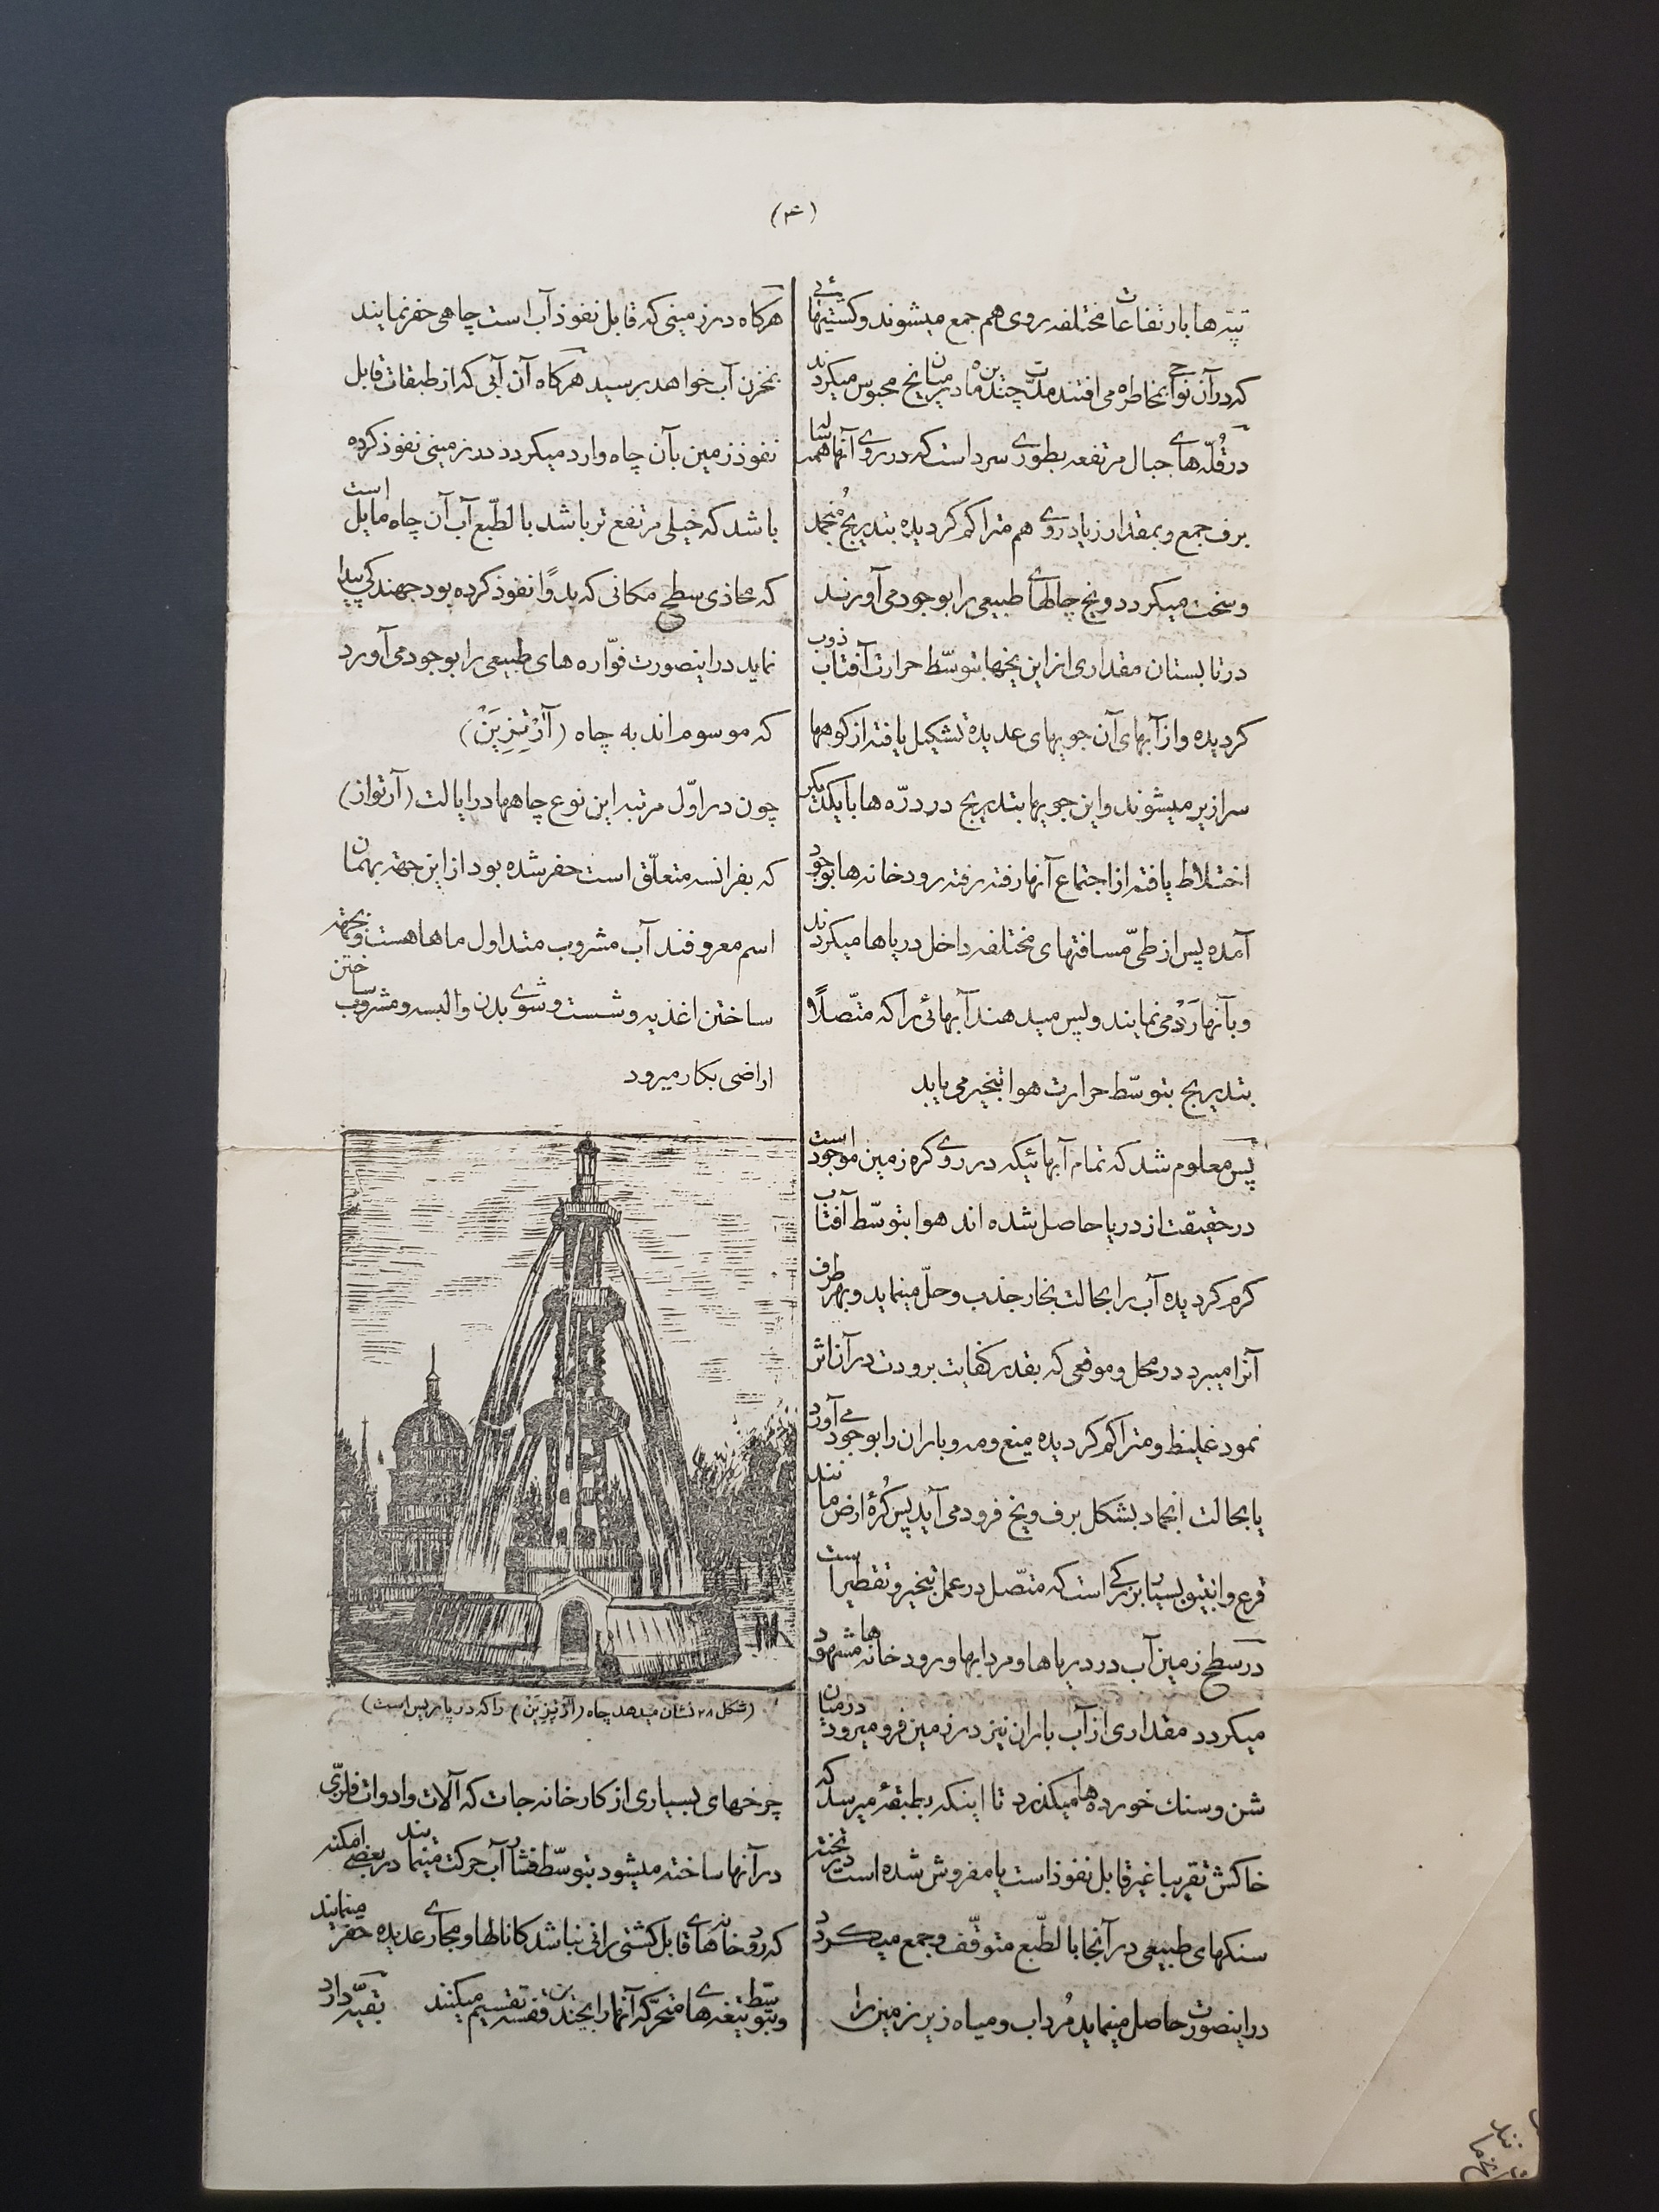 (۴)
تپّه‌ها بارتفاعات مختلفه روی هم جمع میشوند و کشتیهائی
که در آن نواحی بمخاطره می‌افتند مدّت چندین ماه در میان یخ محبوس میکردند
در قُلّه‌های جبال مرتفعه بطوری سرد است که در روی آنها همیشه
برف جمع و بمقدار زیاد روی هم متراکم کردیده بتدریج مُنجمد
و سخت میکردد و یخ چالهای طبیعی را بوجود می‌آورند
در تابستان مقداری از این یخها بتوسّط حرارت آفتاب ذوب
کردیده و از آبهای آن جویهای عدیده تشکیل یافته از کوهها
سرازیر میشوند و این جویها بتدریج در درّه‌ها با یکدیکر
اختلاط یافته از اجتماع آنها رفته رفته رودخانه‌ها بوجود
آمده پس از طیّ مسافتهای مختلفه داخل دریاها میکردند
و بآنها رَدْ می‌نمایند و پس میدهند آبهائی را که متّصلاً
بتدریج بتوسّط حرارت هوا تبخیر می یابد
پس معلوم شد که تمام آبهائیکه در روی کره زمین موجود است
در حقیقت از دریا حاصل شده اند هوا بتوسّط آفتاب
کرم کردیده آب را بحالت بخار جذب و حلّ مینماید و بهر طرف
آنرا میبرد در محل و موقعی که بقدر کفایت برودت در آن اثر
نمود غلیظ و متراکم کردیده میغ و مه و باران را بوجود می‌آورد
یا بحالت انجماد بشکل برف و یخ فرود می‌آید پس کُرهٔ ارض مانند
قرع و انبیق بسیار بزرکی است که متّصل در عمل تبخیر و تقطیر است
در سطح زمین آب در دریاها و مردابها و رودخانه‌ها مشهود
میکردد مقداری از آب باران نیز در زمین فرو میرود در میان
شن و سنك خورده‌ها میکذرد تا اینکه بطبقهٔ میرسد که
خاکش تقریبا غیر قابل نفوذ است یا مفروش شده است در تخته
سنکهای طبیعی در آنجا بالطّبع متوقّف و جمع میکردد
در اینصورت حاصل مینماید مُرداب و میاه زیر زمین را
هرکاه در زمینی که قابل نفوذ آب است چاهی حفر نمایند
بمخزن آب خواهد رسید هرکاه آن آبی که از طبقات قابل
نفوذ زمین بآن چاه وارد میکردد در زمینی نفوذ کرده
باشد که خیلی مرتفع تر باشد بالطّبع آب آن چاه مایل است
که محاذی سطح مکانی که بدوًا نفوذ کرده بود جهندکی پیدا
نماید در اینصورت فوّاره‌های طبیعی را بوجود می‌آورد
که موسوم اند به چاه (آرْتِزِیَنْ)
چون در اوّل مرتبه این نوع چاهها در ایالت (آرتواز)
که بفرانسه متعلّق است حفر شده بود از این جهته بهمان
اسم معروفند آب مشروب متداول ماها هست و بجهته
ساختن اغذیه و شست و شوی بدن و البسه و مشروب ساختن
اراضی بکار میرود
(شکل ۲۸ نشان میدهد چاه (آرْتِزِیَنْ) را که در پاریس است)
چرخهای بسیاری از کارخانه جات که آلات و ادوات فلزّی
در آنها ساخته میشود بتوسّط فشار آب حرکت مینمایند در بعضی امکنه
که رودخانه‌های قابل کشتی رانی نباشد کانالها و مجاری عدیده حفر مینمایند
و بتوسّط تیغه‌های متحرّکه آنها را بچندین قفسه تقسیم میکنند بقیّه دارد